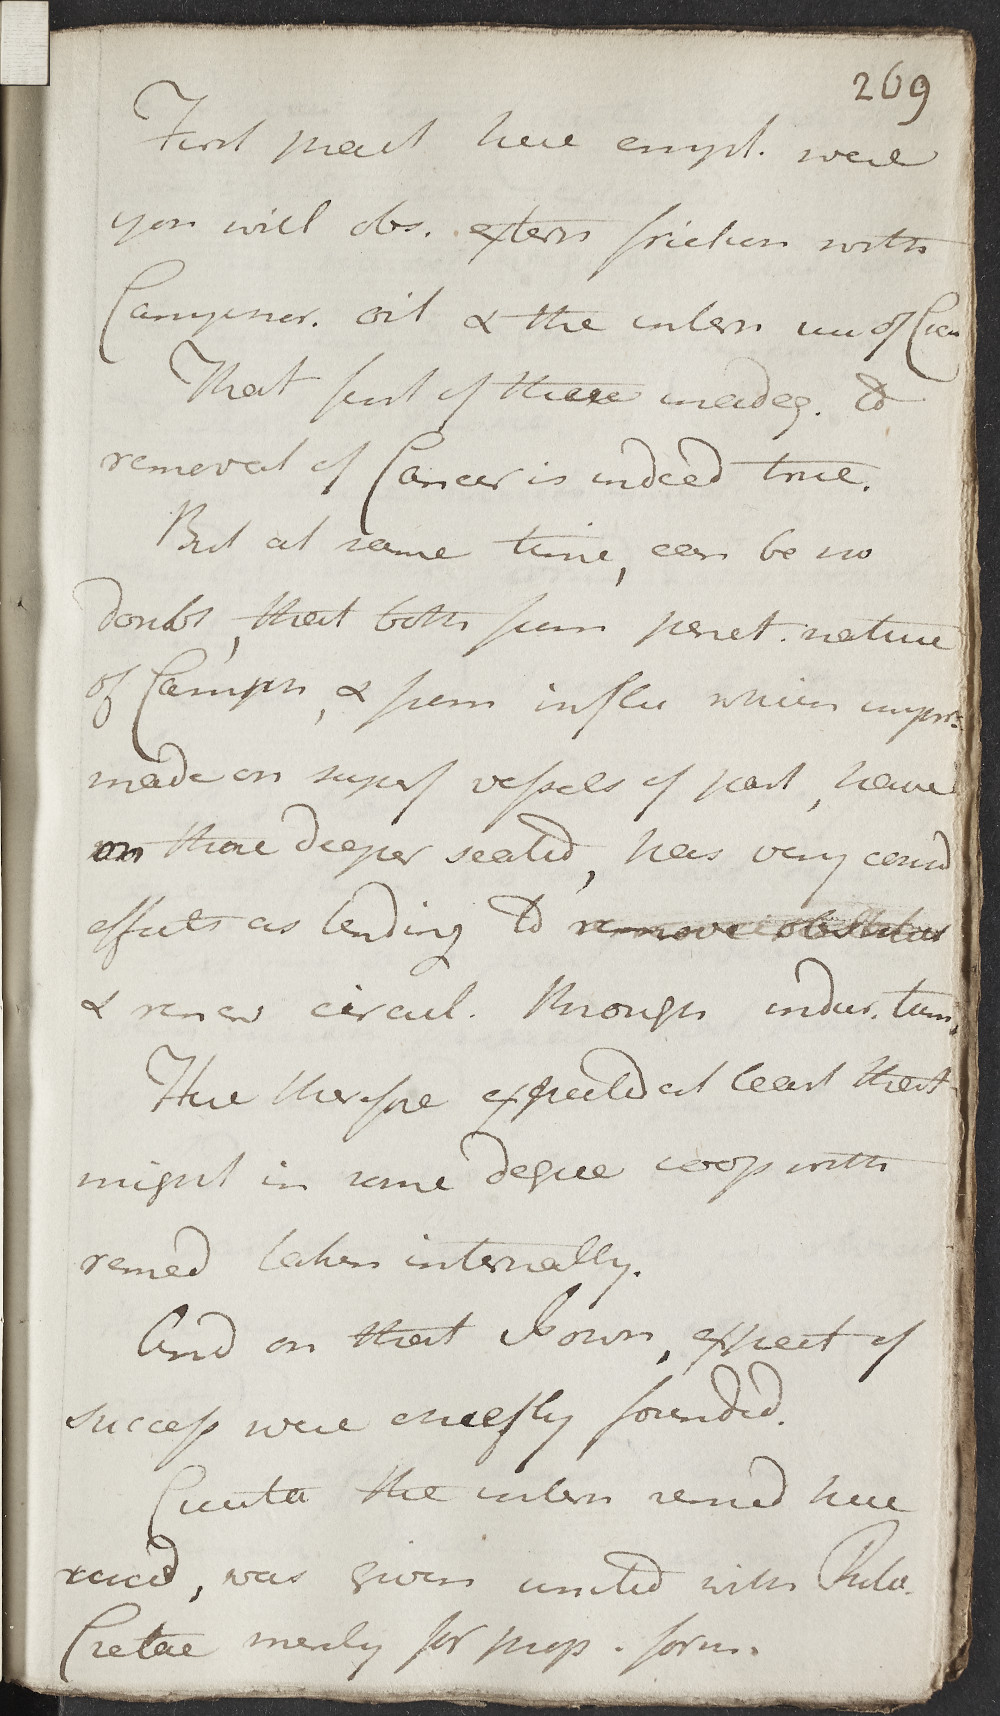 269
First pract here empl. were
you will obs. extern friction with
Camphor. oil & the intern use of Cicu
That first of these inadeq. to
removal of Cancer is indeed true.
But at same time, can be no
doubt, that both from penet. nature
of Camph, & from influ which impr:
made on superf vessels of part, have
on those deeper seated, has very consid
effects as tending to remove obstruct
& renew circul. through indur. tum.
Hue therefore expected at least that
might in some degree coop with
remed taken internally.
And on that I own, expect of
success were chiefly founded.
Cicuta the intern remed here
recd, was given united with Pulv.
Cretae merely for prop. form.